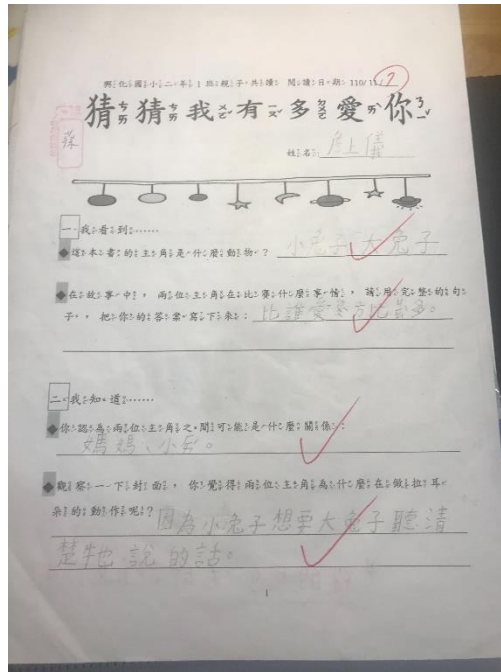 興化國小二年1班親子共讀 閱讀日期110/11/2
猜猜我有多愛你
蔡
姓名:詹上儀
一、我看到……
◆這本書的主角是什麼動物?小兔子、大兔子
◆在故事中,兩位主角在比賽什麼事情,請用完整的句
子,把你的答案寫下來:比誰愛對方比最多。
二、我知道……
◆你認為兩位主角之間可能是什麼關係:
媽媽、小兔。
◆觀察一下封面,你覺得兩位主角為什麼在做拉耳
朵的動作呢?因為小兔子想要大兔子聽清
楚牠說的話。
1